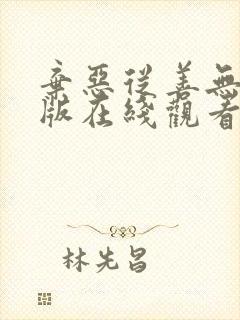 棄惡從善無
版在綫觀看
林先昌